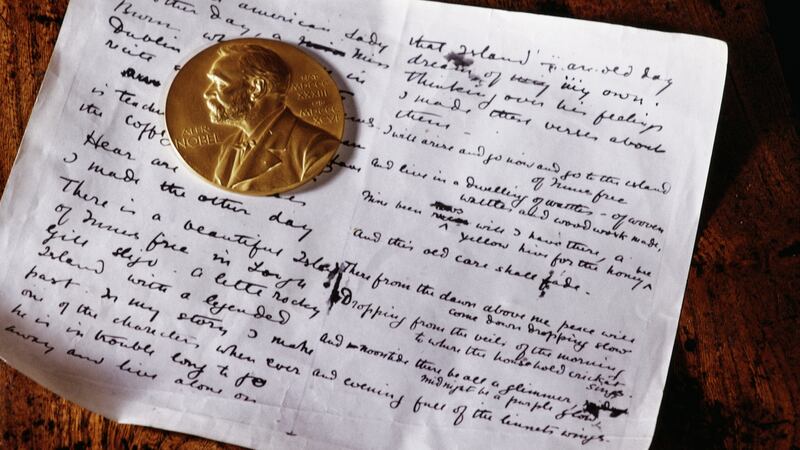 other day a american Lady
Burn.
Dublin
write
is teach
the coff
Hear are
I made the other day
There is a beautiful Isla
of Innis free in Lough
Gill sligo. a little rocky
Island with a legended
past. In my story I make
one of the charecters when ever
he is in trouble long to go
away and live alone on
ALFR.
NOBEL
NAT.
MDCCC
XXXIII
OB.
MDCCC
XCVI
that Island — an old day
dream of my own.
thinking over his feelings
I made these verses about
them —
I will arise and go now and go to the island
of Innis free
and live in a dwelling of wattles — of woven
wattles and wood work made,
Nine been rows will I have there, a
yellow hive for the honey
And this old care shall fade.
There from the dawn above me peace will
come down dropping slow
Dropping from the veils of the morning
to where the household cricket
sings.
and noontide there be all a glimmer,
midnight be a purple glow
and evening full of the linnets wings.